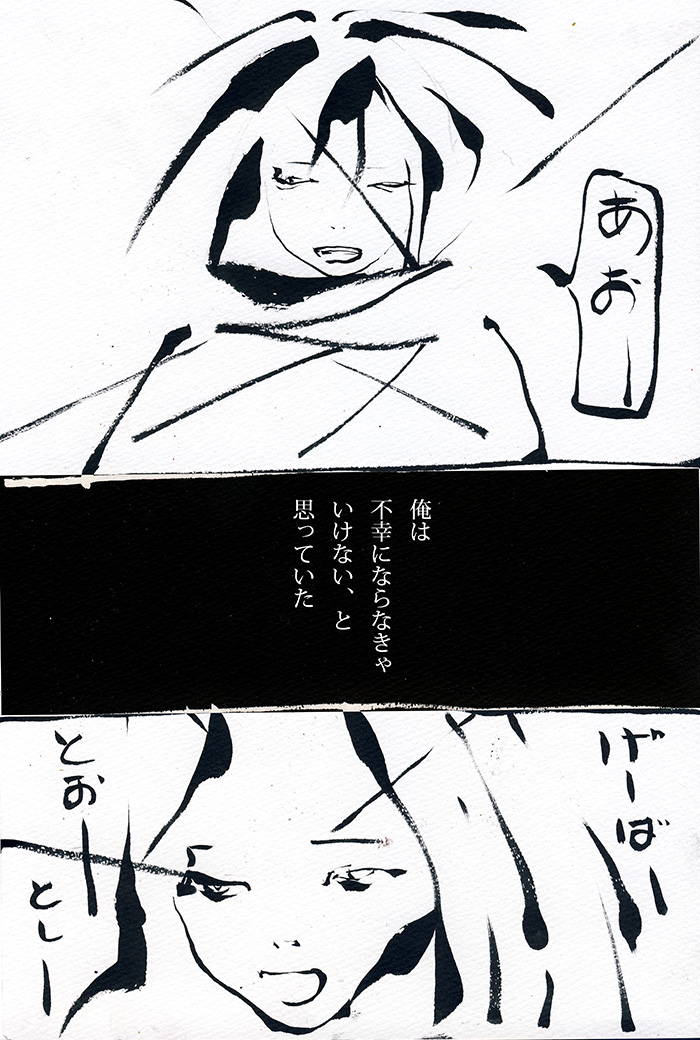 あおー
俺は
不幸にならなきゃ
いけない、と
思っていた
げーばー
とおー
とぅー